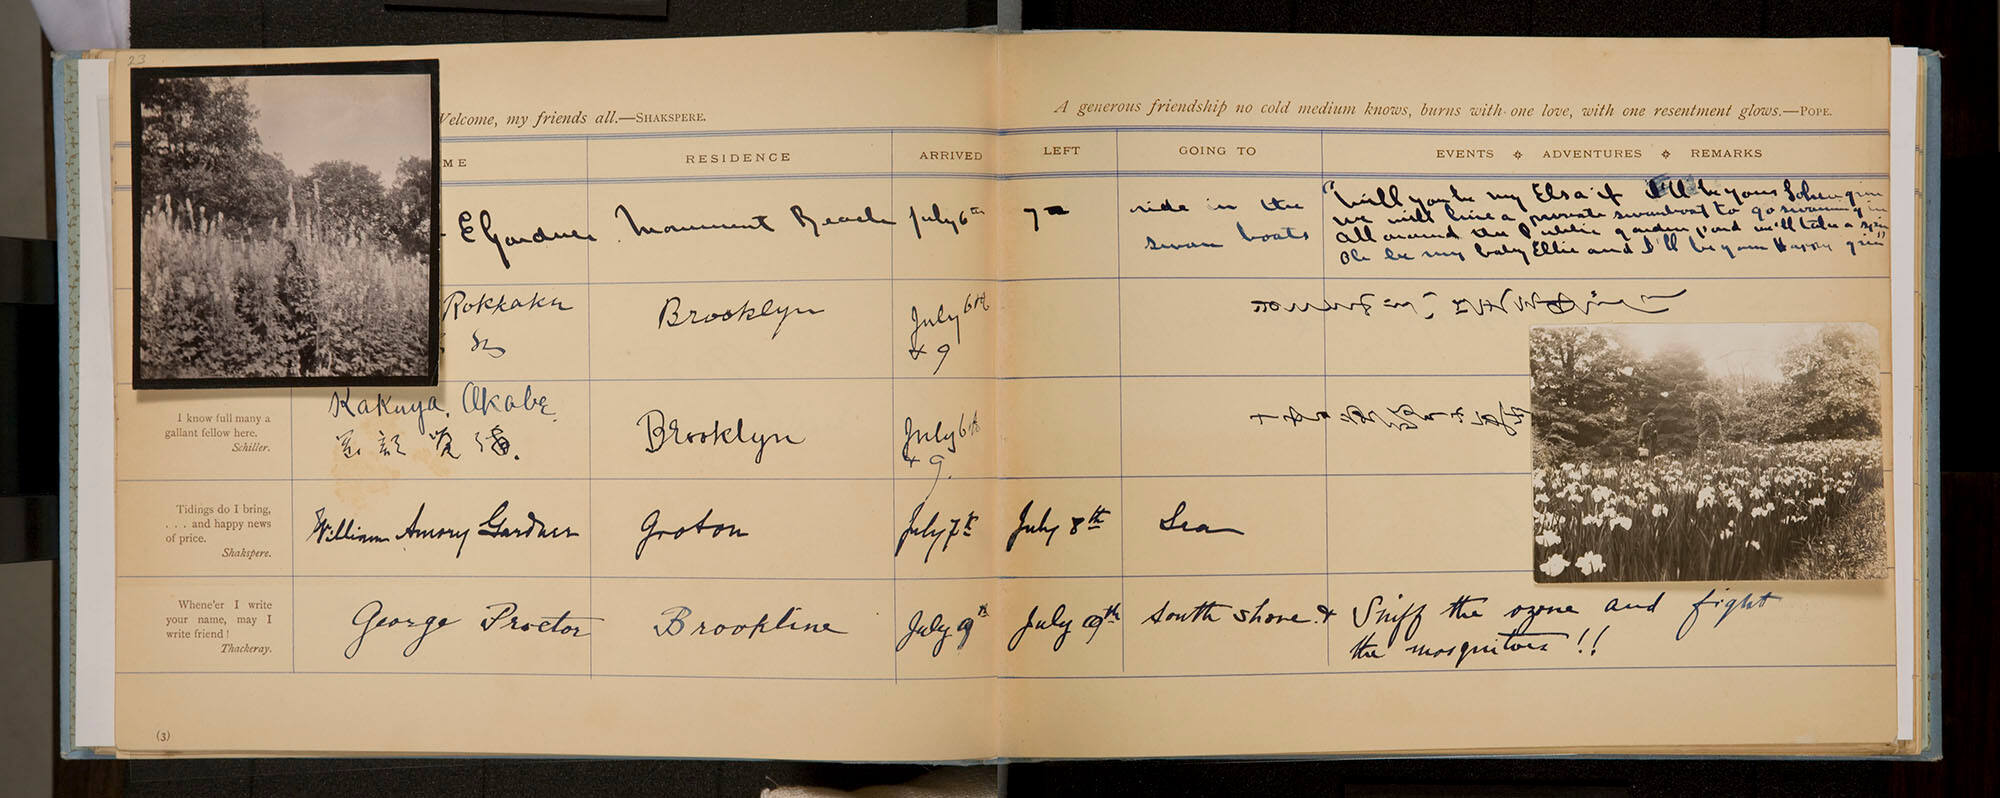 23
Welcome, my friends all.—SHAKSPERE.
A generous friendship no cold medium knows, burns with one love, with one resentment glows.—POPE.
ME RESIDENCE ARRIVED LEFT GOING TO EVENTS ADVENTURES REMARKS
E Gardner Monument Beach July 6th 7th ride in the
swan boats
"Will you be my Elsa if I'll be your Lohengrin
we will hire a private swanboat to go swanning in
All around the Public garden pond we'll take a spin
Oh be my baby Ellie and I'll be your Happy grin"
Rokkaku Brooklyn July 6th
& 9
I know full many a
gallant fellow here.
Schiller.
Kakuya. Okabe Brooklyn July 6th
& 9.
岡部覚弥
Tidings do I bring,
. . . and happy news
of price.
Shakspere.
William Amory Gardner Groton July 7th July 8th Sea
Whene'er I write
your name, may I
write friend!
Thackeray.
George Proctor Brookline July 9th July 9th South Shore. & Sniff the ozone and fight
the mosquitoes!!
(3)